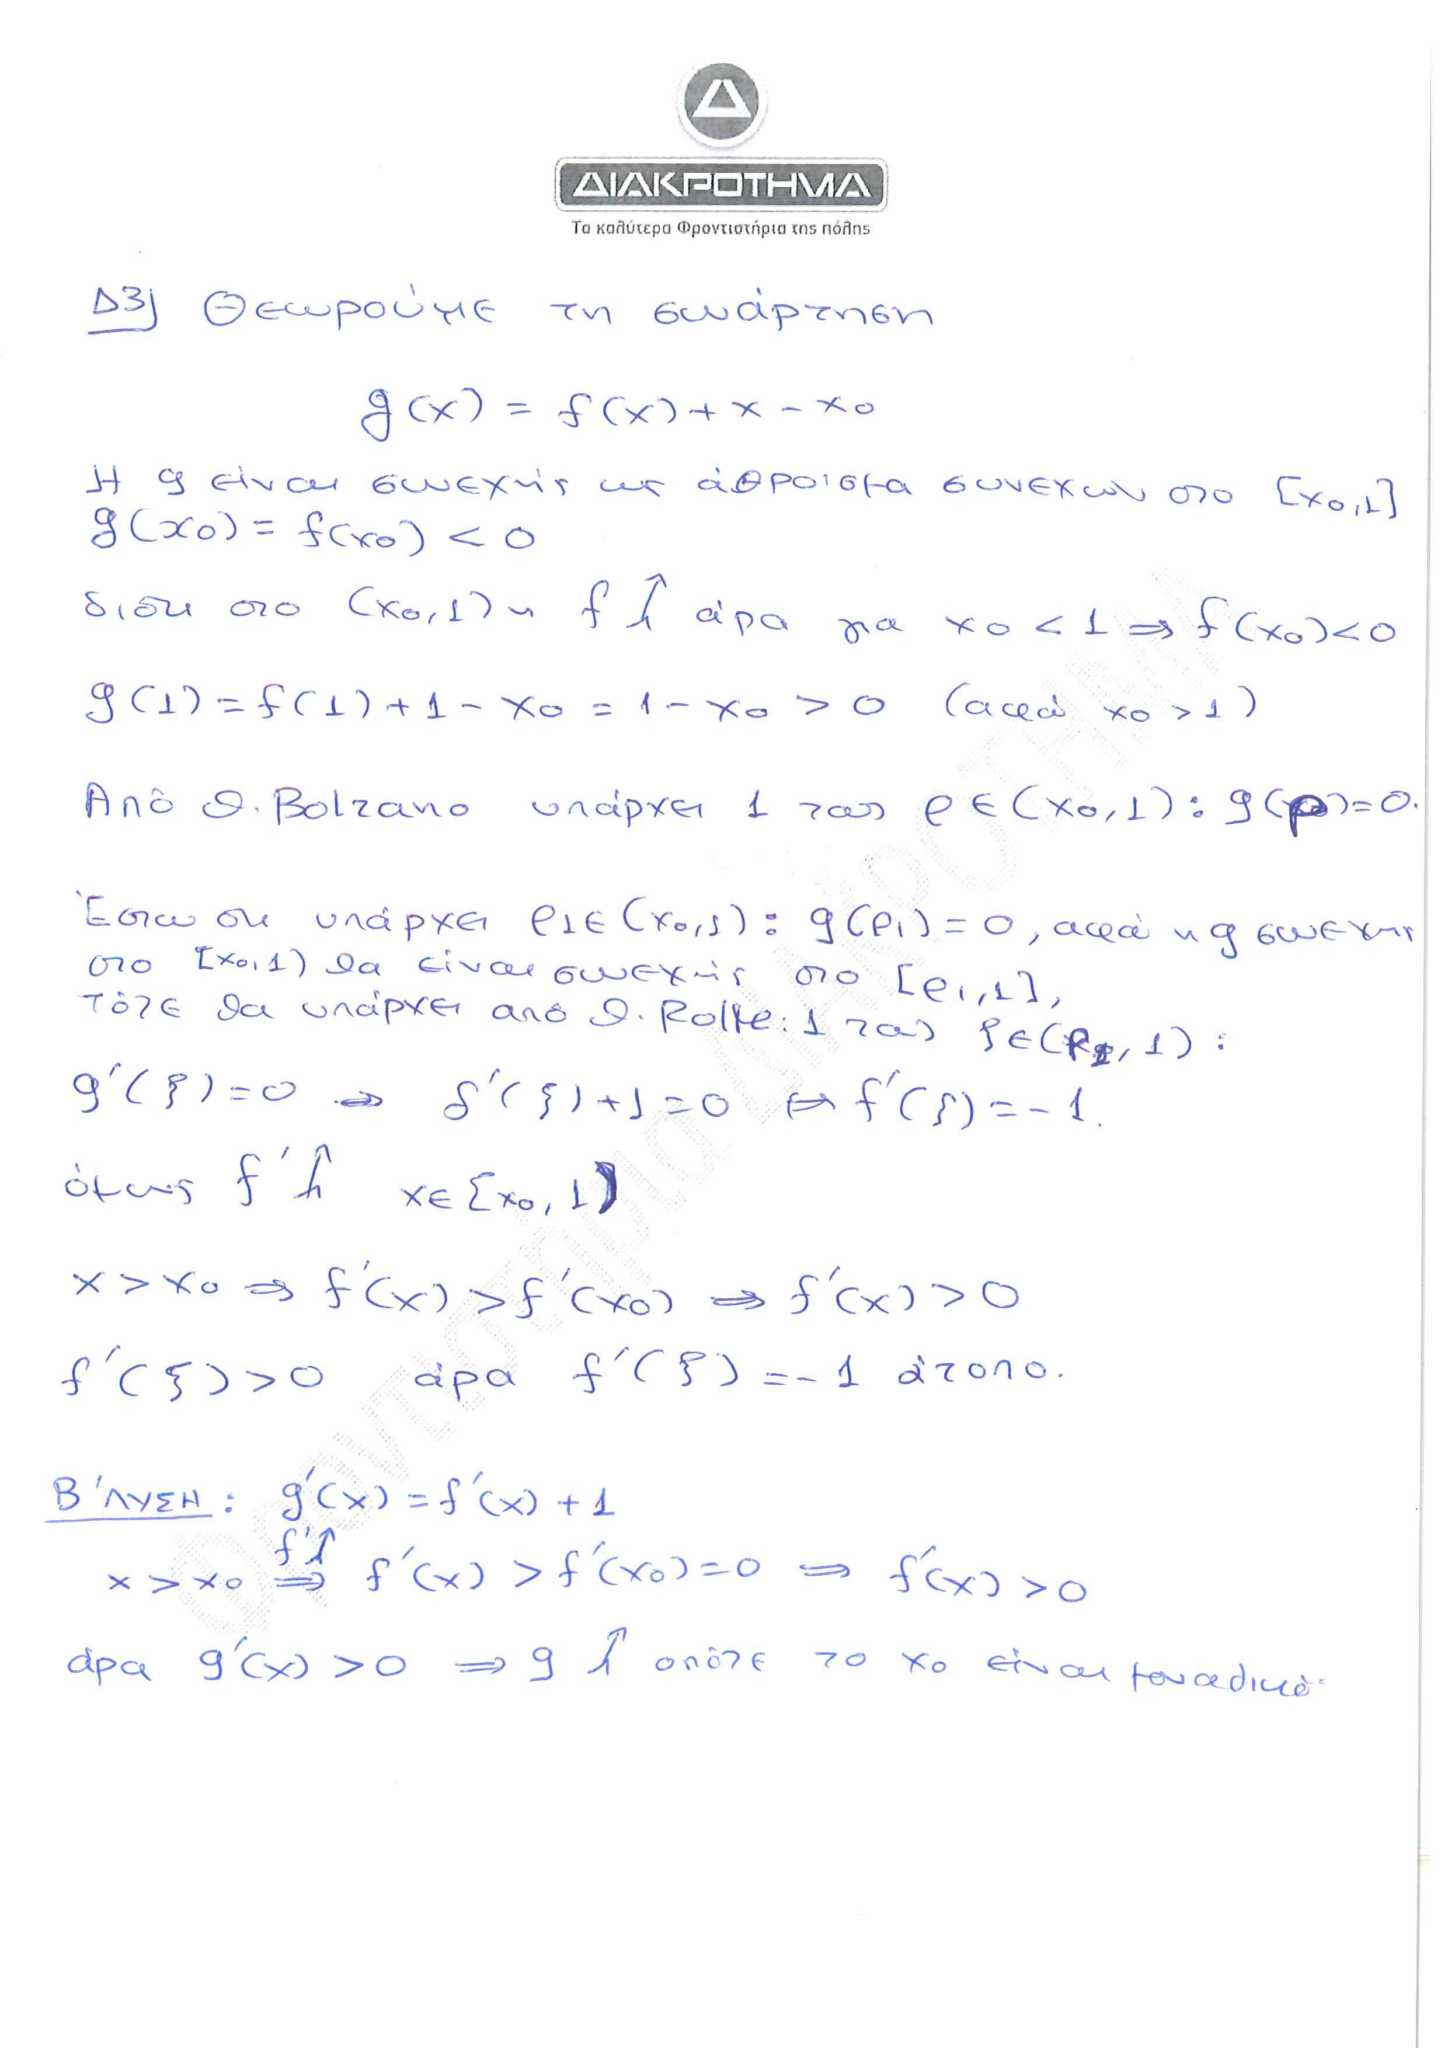 Δ
ΔΙΑΚΡΟΤΗΜΑ
Τα καλύτερα Φροντιστήρια της πόλης
Δ3) Θεωρούμε τη συνάρτηση
g(x) = f(x) + x - x₀
Η g είναι συνεχής ως άθροισμα συνεχών στο [x₀,1]
g(x₀) = f(x₀) < 0
διότι στο (x₀,1) η f ↑ άρα για x₀ < 1 ⇒ f(x₀)<0
g(1) = f(1) + 1 - x₀ = 1 - x₀ > 0 (αφού x₀ > 1)
Από Θ. Bolzano υπάρχει 1 τουλ ρ ∈ (x₀,1): g(ρ)=0.
Έστω ότι υπάρχει ρ₁∈(x₀,1): g(ρ₁)=0, αφού η g συνεχής
στο [x₀,1) θα είναι συνεχής στο [ρ₁,1],
Τότε θα υπάρχει από Θ. Rolle: 1 τουλ ξ∈(ρ₁,1):
g'(ξ)=0 ⇒ f'(ξ)+1=0 ⇔ f'(ξ)=-1.
όμως f' ↑ x∈[x₀,1)
x > x₀ ⇒ f'(x) > f'(x₀) ⇒ f'(x) > 0
f'(ξ) > 0 άρα f'(ξ) = -1 άτοπο.
Β' ΛΥΣΗ: g'(x) = f'(x) + 1
f' ↑
x > x₀ ⇒ f'(x) > f'(x₀)=0 ⇒ f'(x) > 0
άρα g'(x) > 0 ⇒ g ↑ οπότε το x₀ είναι μοναδικό.
Φροντιστήρια ΔΙΑΚΡΟΤΗΜΑ